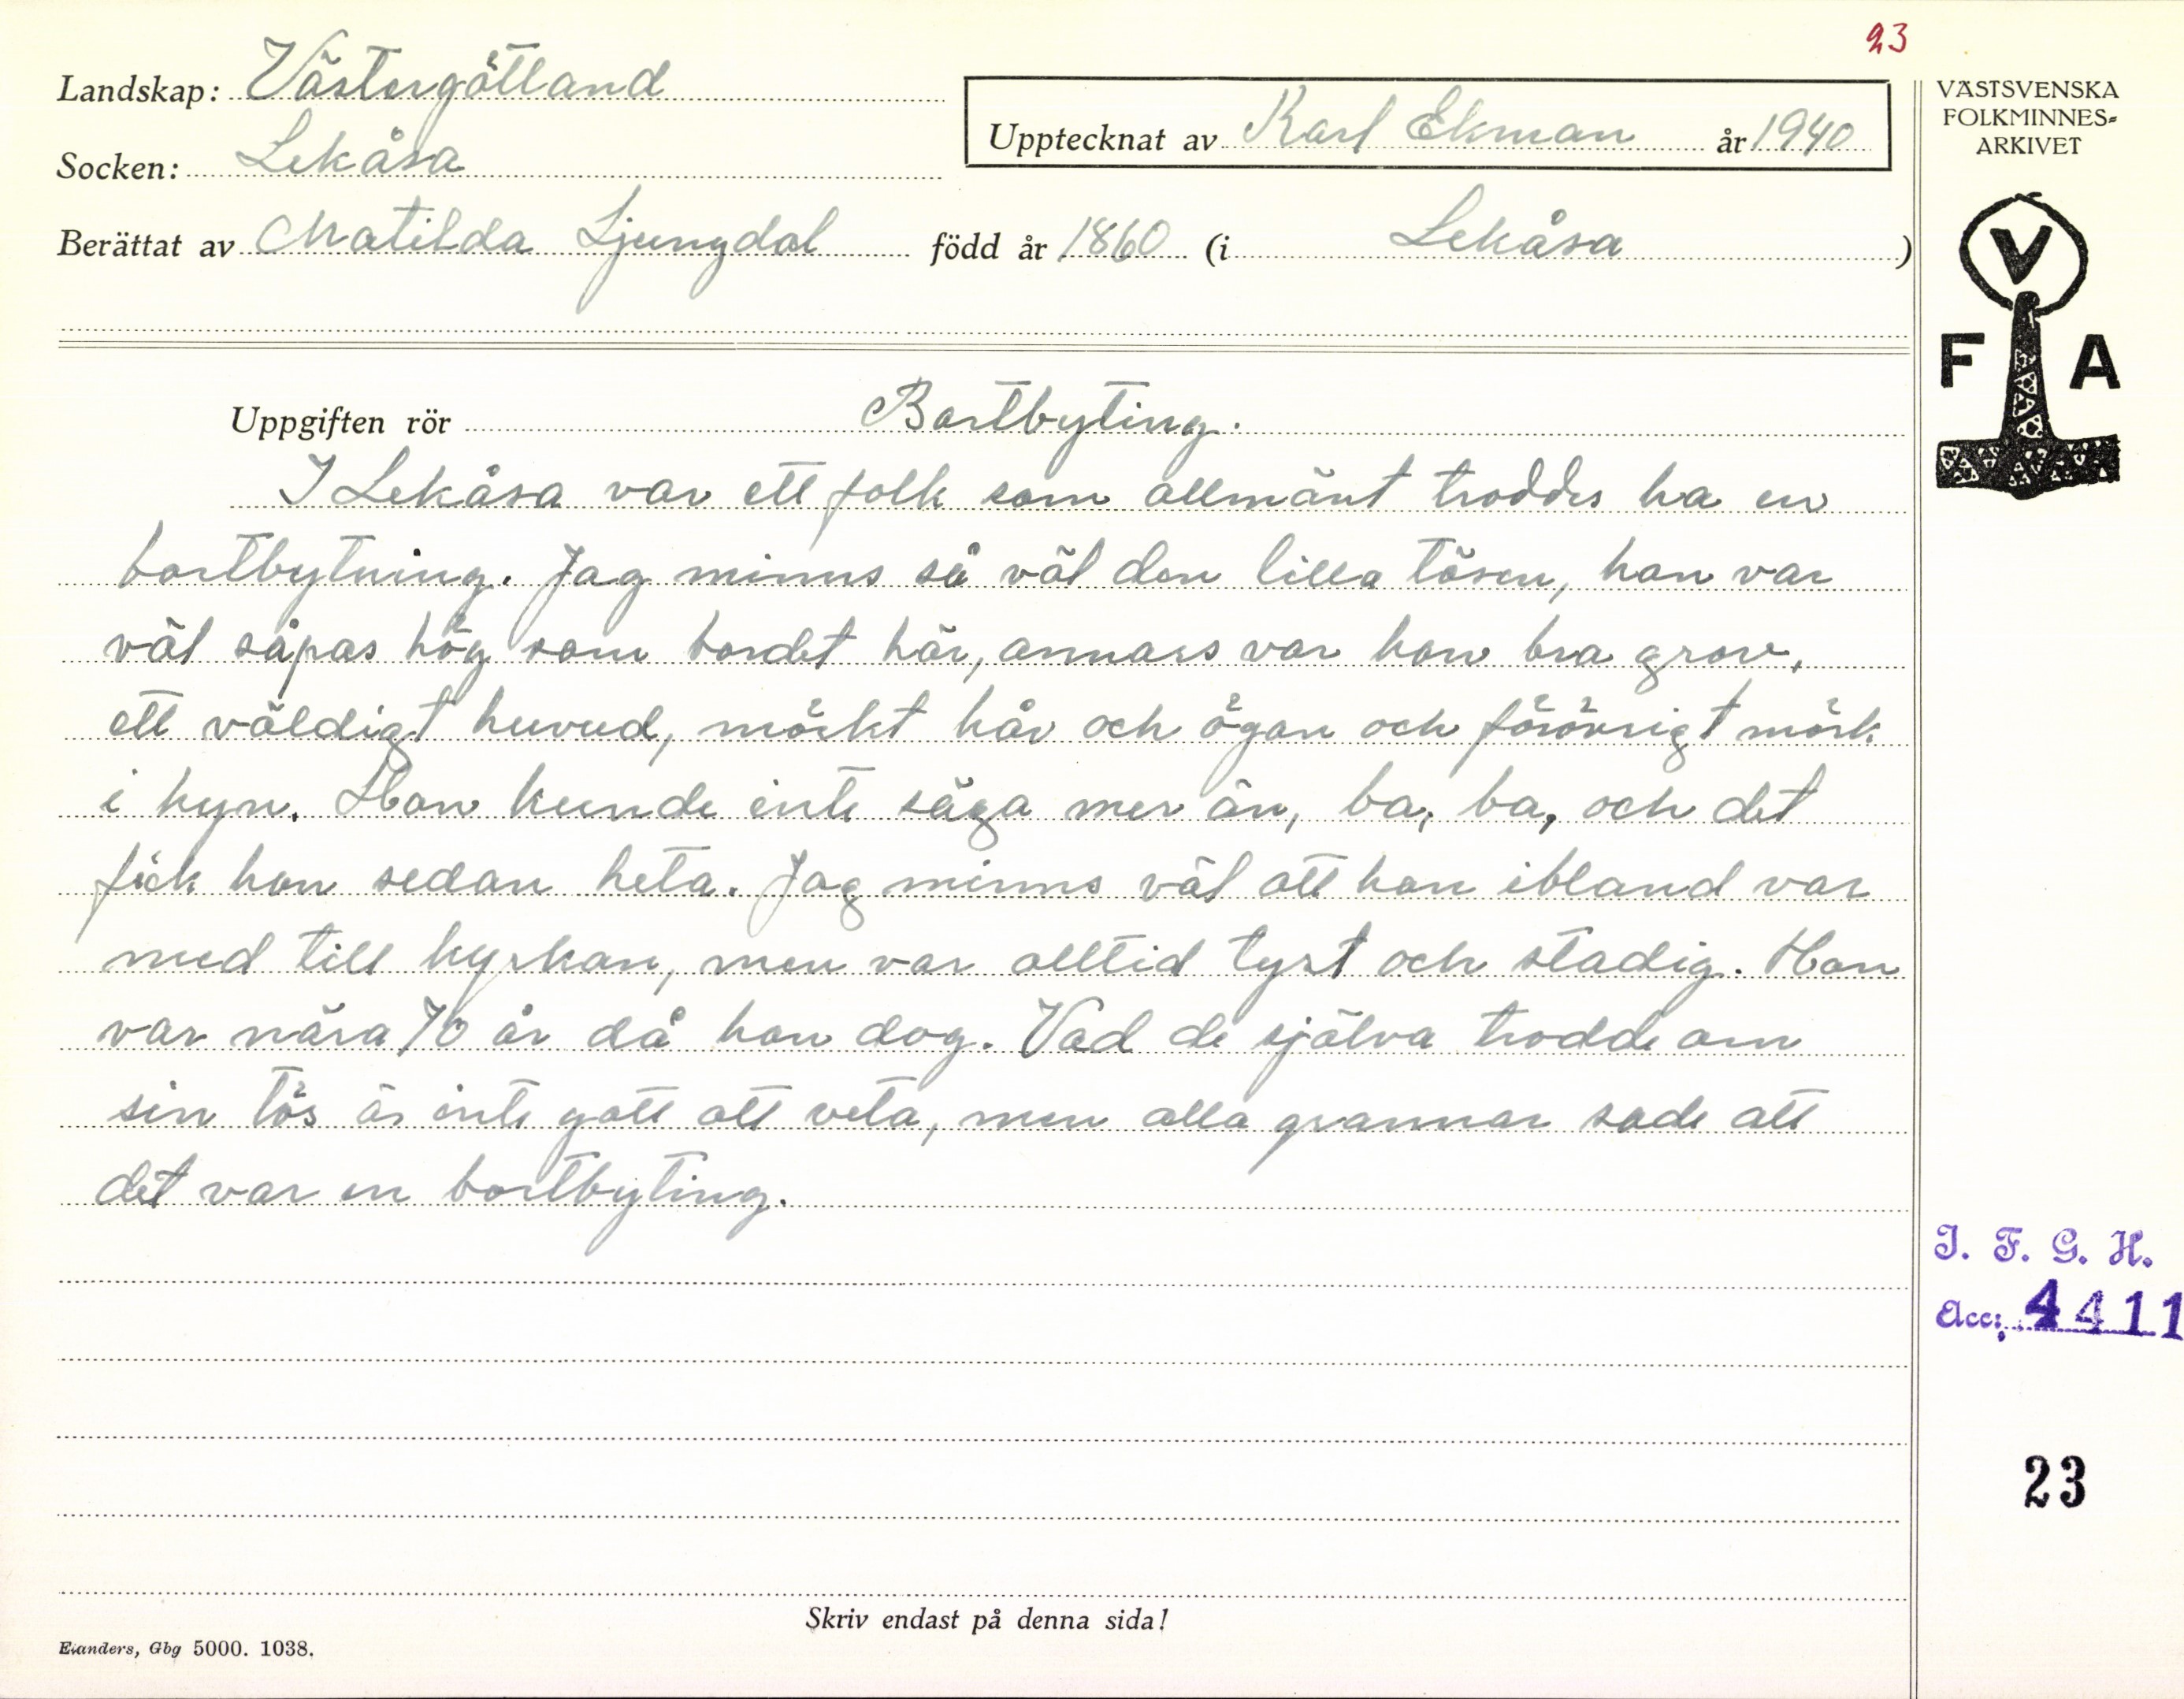 23
Landskap: Västergötland
Socken: Lekåsa
Upptecknat av Karl Ekman år 1940
Berättat av Matilda Ljungdal född år 1860 (i Lekåsa)
VÄSTSVENSKA
FOLKMINNES-
ARKIVET
V
F A
Uppgiften rör Bortbyting.
I Lekåsa var ett folk som allmänt troddes ha en
bortbytning. Jag minns så väl den lilla tösen, hon var
väl såpas hög som bordet här, annars var hon bra grov,
ett väldigt huvud, mörkt hår och ögon och förövrigt mörk
i hyn. Hon kunde inte säga mer än, ba, ba, och det
fick hon sedan heta. Jag minns väl att hon ibland var
med till kyrkan, men var alltid tyst och stadig. Hon
var nära 70 år då hon dog. Vad de själva trodde om
sin tös är inte gott att veta, men alla grannar sade att
det var en bortbyting.
I. F. G. H.
Acc: 4411
23
Skriv endast på denna sida!
Elanders, Gbg 5000. 1038.